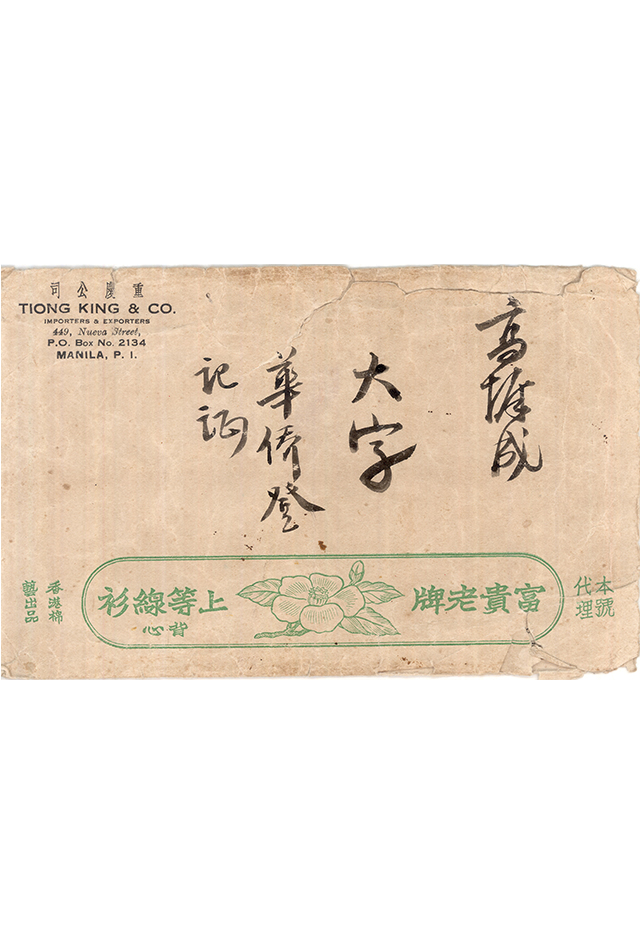 司公慶重
TIONG KING & CO.
IMPORTERS & EXPORTERS
449, Nueva Street,
P.O. Box No. 2134
MANILA, P. I.
高墀成
大字
華僑登
記証
本號
代理
牌老貴富
衫線等上
心背
香港棉
藝出品